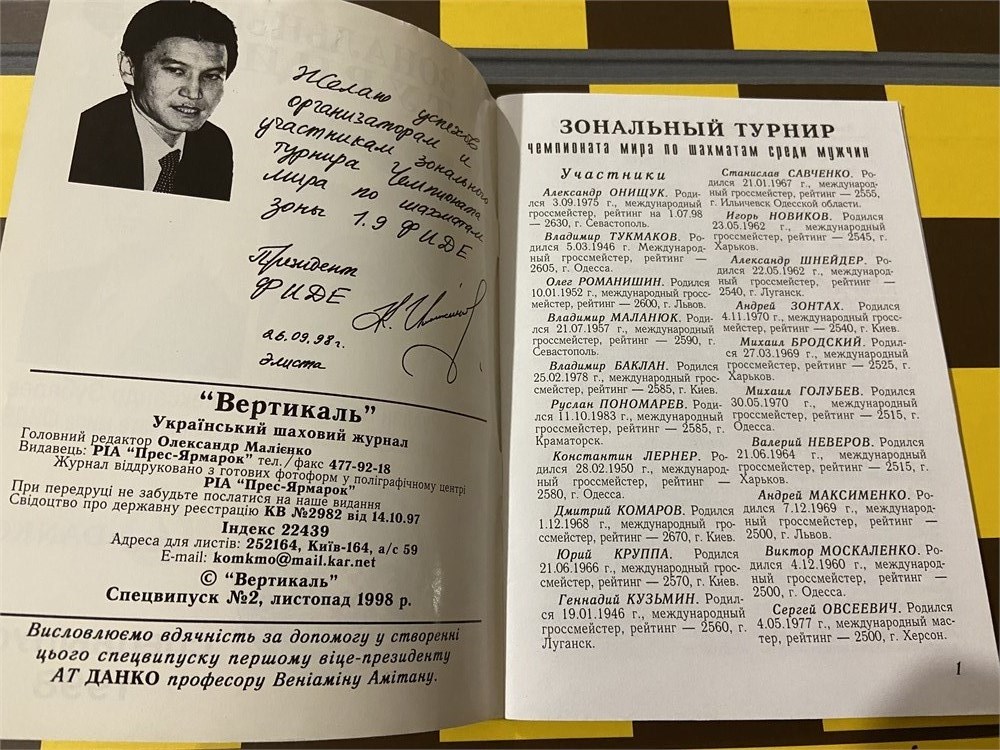 Желаю успехов
организаторам и
участникам зонального
турнира Чемпионата
мира по шахматам
зоны 1.9 ФИДЕ
Президент
ФИДЕ
26.09.98г.
Элиста
"Вертикаль"
Український шаховий журнал
Головний редактор Олександр Малієнко
Видавець: РІА "Прес-Ярмарок" тел./факс 477-92-18
Журнал віддруковано з готових фотоформ у поліграфічному центрі
РІА "Прес-Ярмарок"
При передруці не забудьте послатися на наше видання
Свідоцтво про державну реєстрацію КВ №2982 від 14.10.97
Індекс 22439
Адреса для листів: 252164, Київ-164, а/с 59
E-mail: komkmo@mail.kar.net
© "Вертикаль"
Спецвипуск №2, листопад 1998 р.
Висловлюємо вдячність за допомогу у створенні
цього спецвипуску першому віце-президенту
АТ ДАНКО професору Веніаміну Амітану.
ЗОНАЛЬНЫЙ ТУРНИР
чемпионата мира по шахматам среди мужчин
Участники
Александр ОНИЩУК. Роди-
лся 3.09.1975 г., международный
гроссмейстер, рейтинг на 1.07.98
— 2630, г. Севастополь.
Владимир ТУКМАКОВ. Ро-
дился 5.03.1946 г. Международ-
ный гроссмейстер, рейтинг —
2605, г. Одесса.
Олег РОМАНИШИН. Родился
10.01.1952 г., международный гросс-
мейстер, рейтинг — 2600, г. Львов.
Владимир МАЛАНЮК. Роди-
лся 21.07.1957 г., международный
гроссмейстер, рейтинг — 2590, г.
Севастополь.
Владимир БАКЛАН. Родился
25.02.1978 г., международный грос-
смейстер, рейтинг — 2585, г. Киев.
Руслан ПОНОМАРЕВ. Роди-
лся 11.10.1983 г., международный
гроссмейстер, рейтинг — 2585, г.
Краматорск.
Константин ЛЕРНЕР. Роди-
лся 28.02.1950 г., международ-
ный гроссмейстер, рейтинг —
2580, г. Одесса.
Дмитрий КОМАРОВ. Родился
1.12.1968 г., международный грос-
смейстер, рейтинг — 2670, г. Киев.
Юрий КРУППА. Родился
21.06.1966 г., международный грос-
смейстер, рейтинг — 2570, г. Киев.
Геннадий КУЗЬМИН. Родил-
ся 19.01.1946 г., международный
гроссмейстер, рейтинг — 2560, г.
Луганск.
Станислав САВЧЕНКО. Ро-
дился 21.01.1967 г., международ-
ный гроссмейстер, рейтинг — 2555,
г. Ильичевск Одесской области.
Игорь НОВИКОВ. Родился
23.05.1962 г., международный
гроссмейстер, рейтинг — 2545, г.
Харьков.
Александр ШНЕЙДЕР. Родился
22.05.1962 г., международ-
ный гроссмейстер, рейтинг —
2540, г. Луганск.
Андрей ЗОНТАХ. Родился
4.11.1970 г., международный гросс-
мейстер, рейтинг — 2540, г. Киев.
Михаил БРОДСКИЙ. Родил-
ся 27.03.1969 г., международный
гроссмейстер, рейтинг — 2525, г.
Харьков.
Михаил ГОЛУБЕВ. Родился
30.05.1970 г., международный
гроссмейстер, рейтинг — 2515, г.
Одесса.
Валерий НЕВЕРОВ. Родился
21.06.1964 г., международный
гроссмейстер, рейтинг — 2515, г.
Харьков.
Андрей МАКСИМЕНКО. Ро-
дился 7.12.1969 г., международ-
ный гроссмейстер, рейтинг —
2500, г. Львов.
Виктор МОСКАЛЕНКО. Ро-
дился 4.12.1960 г., международ-
ный гроссмейстер, рейтинг —
2500, г. Одесса.
Сергей ОВСЕЕВИЧ. Родился
4.05.1977 г., международный мас-
тер, рейтинг — 2500, г. Херсон.
1